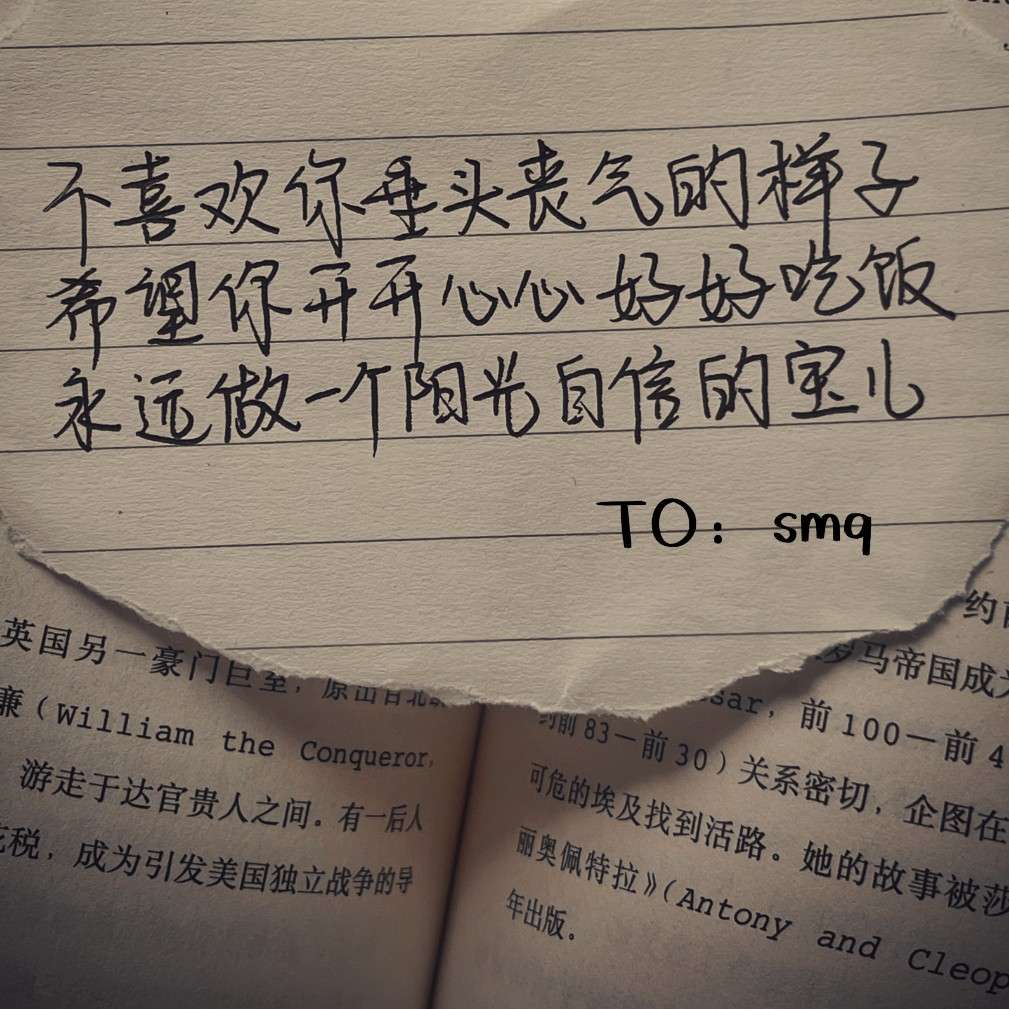 不喜欢你垂头丧气的样子
希望你开开心心好好吃饭
永远做一个阳光自信的宝儿
TO：smq
英国另一豪门巨室，原出自北
廉（William the Conqueror,
游走于达官贵人之间。有一后人
花税，成为引发美国独立战争的导
约
罗马帝国成为
sar，前100—前4
约前83—前30）关系密切，企图在
可危的埃及找到活路。她的故事被莎
丽奥佩特拉》（Antony and Cleop
年出版。